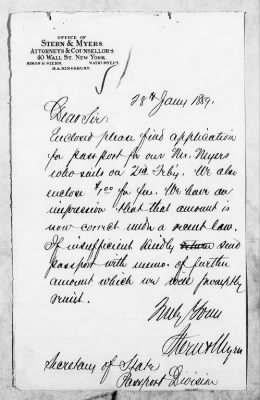 OFFICE OF
STERN & MYERS
ATTORNEYS & COUNSELLORS
40 WALL ST. NEW YORK.
SIMON H. STERN. NATH'L MYERS.
28th Jany 1889.
Dear Sir:
Enclosed please find application
for passport for our Mr. Myers
who sails on 2nd Feb'y. We also
enclose $1.00 for fee. We have an
impression that that amount is
now correct under a recent law.
If insufficient kindly return send
passport with memo. of further
amount which we will promptly
remit.
Truly Yours
Stern & Myers
Secretary of State
Passport Division